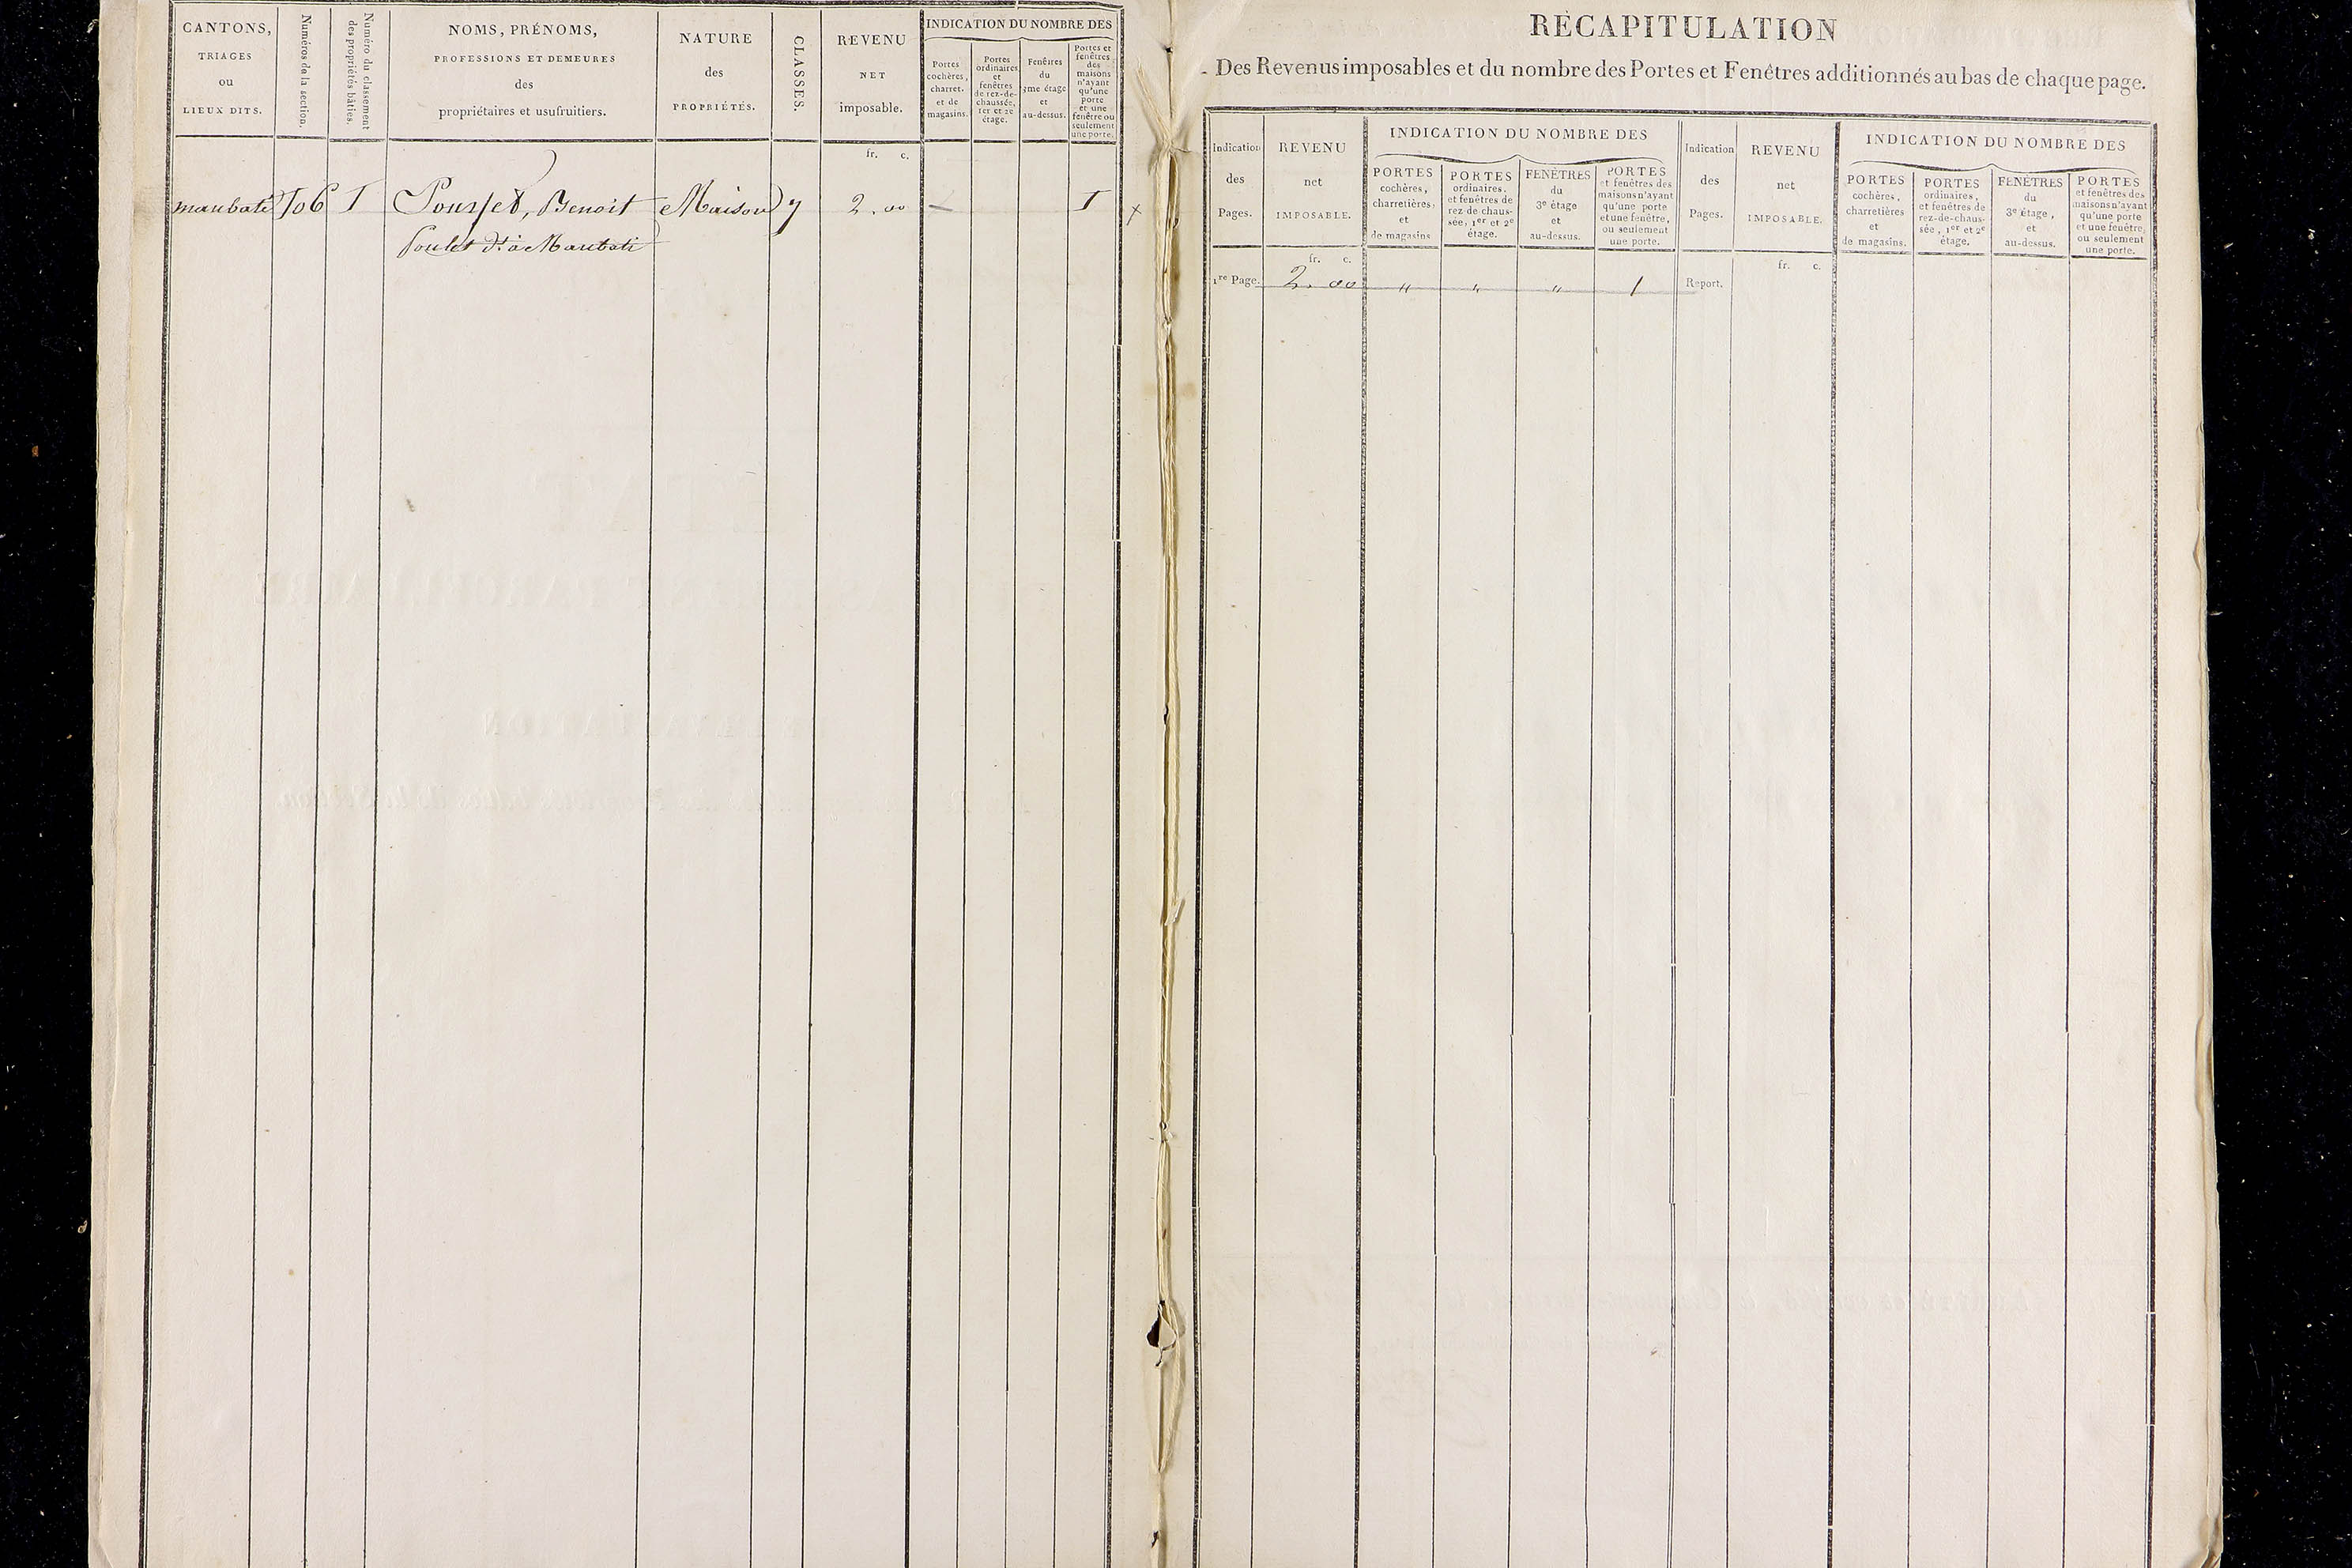 CANTONS,
TRIAGES
ou
LIEUX DITS.
Numéros de la section.
Numéro du classement
des propriétés bâties.
NOMS, PRÉNOMS,
PROFESSIONS ET DEMEURES
des
propriétaires et usufruitiers.
NATURE
des
PROPRIÉTÉS.
CLASSES.
REVENU
NET
imposable.
INDICATION DU NOMBRE DES
Portes
cochères,
charret.
et de
magasins.
Portes
ordinaires
et
fenêtres
de rez-de-
chaussée,
1er et 2e
étage.
Fenêtres
du
3me étage
et
au-dessus.
Portes et
fenêtres
des
maisons
n'ayant
qu'une
porte
et une
fenêtre ou
seulement
une porte.
fr. c.
maubati 106 1 Pousset, Benoit Maison 7 2.00 1
Poulet dit à Maubati
RÉCAPITULATION
Des Revenus imposables et du nombre des Portes et Fenêtres additionnés au bas de chaque page.
Indication
des
Pages.
REVENU
net
IMPOSABLE.
INDICATION DU NOMBRE DES
PORTES
cochères,
charretières,
et
de magasins
PORTES
ordinaires,
et fenêtres de
rez-de-chaus-
sée, 1er et 2e
étage.
FENÊTRES
du
3e étage
et
au-dessus.
PORTES
et fenêtres des
maisons n'ayant
qu'une porte
et une fenêtre,
ou seulement
une porte.
Indication
des
Pages.
REVENU
net
IMPOSABLE.
INDICATION DU NOMBRE DES
PORTES
cochères,
charretières
et
de magasins.
PORTES
ordinaires,
et fenêtres de
rez-de-chaus-
sée, 1er et 2e
étage.
FENÊTRES
du
3e étage,
et
au-dessus.
PORTES
et fenêtres des
maisons n'ayant
qu'une porte
et une fenêtre,
ou seulement
une porte.
fr. c.
fr. c.
1re Page. 2.00 " " " 1 Report.